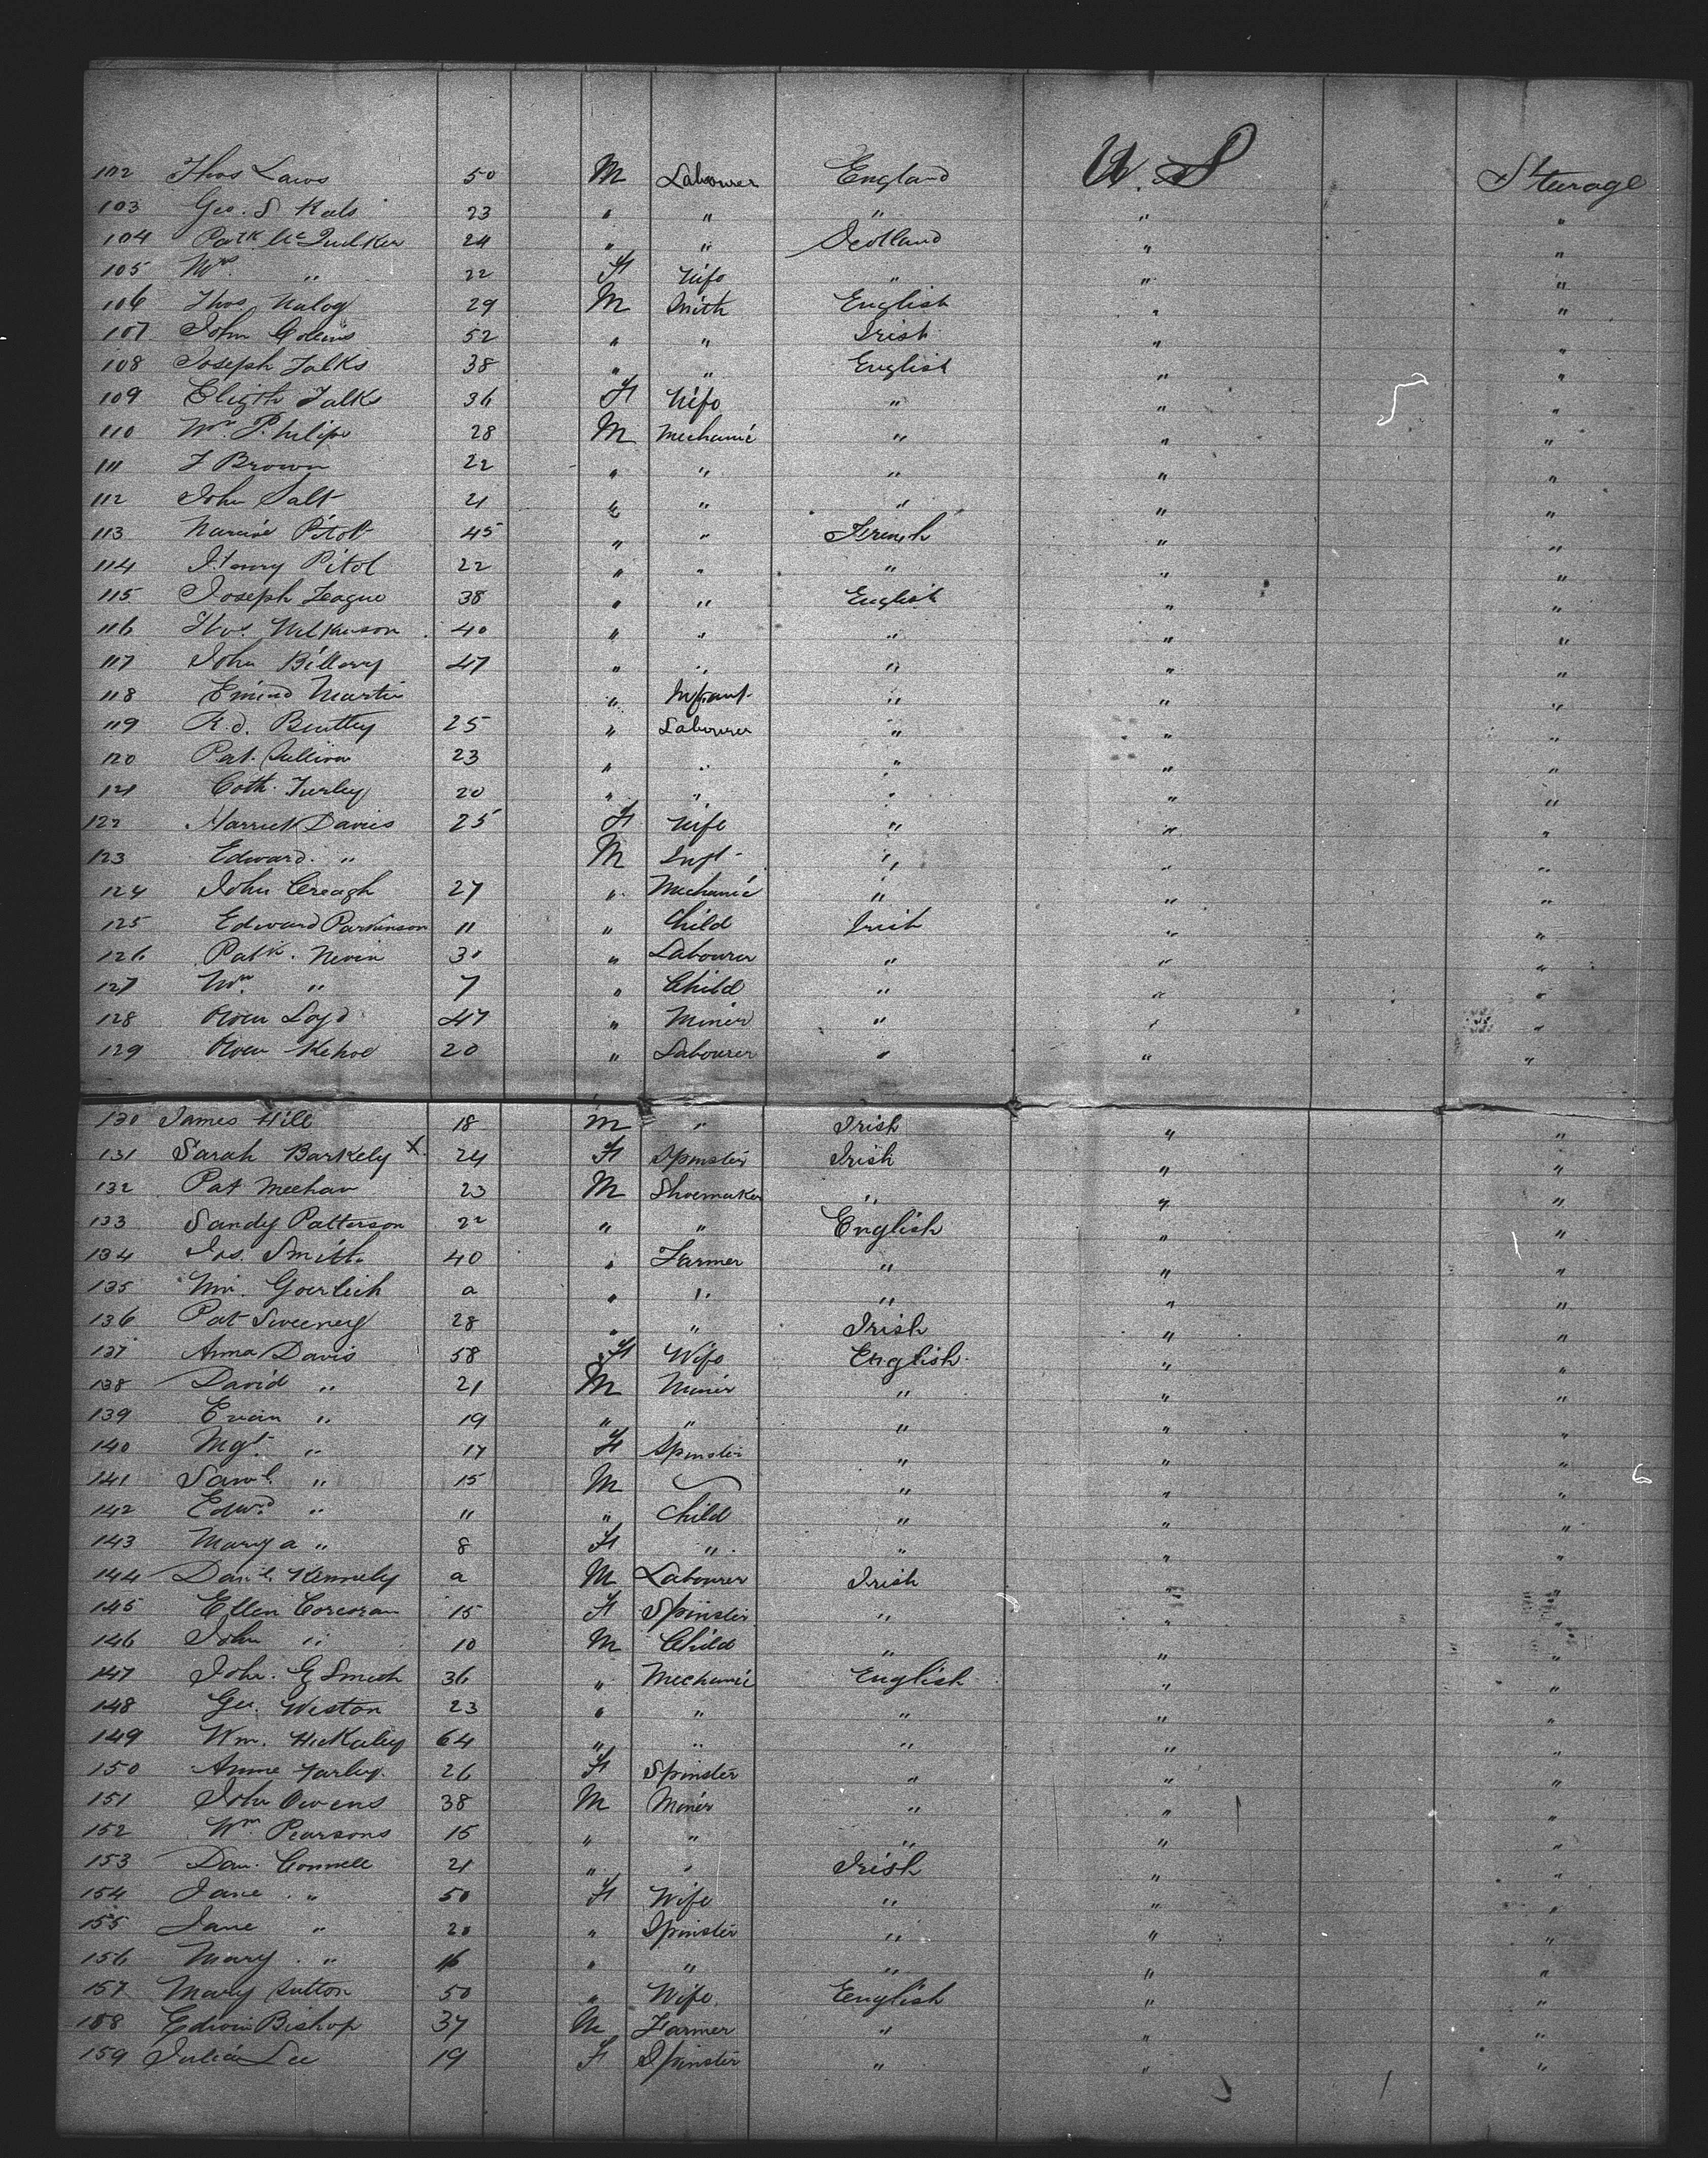 102 Thos Laws 50 M Labourer England U.S Sturage
103 Geo. S 23 " " " " "
104 Patk Mc 24 " " Scotland " "
105 Mrs " 22 F Wife " " "
106 Thos 29 M Smith English " "
107 John Colins 52 " " Irish " "
108 Joseph Falks 38 " " English " "
109 Elizth Falks 36 F Wife " " "
110 Wm. Philips 28 M Mechanic " " "
111 J Brown 22 " " " " "
112 John Salt 21 " " " " "
113 Pitot 45 " " French " "
114 Henry Pitot 22 " " " " "
115 Joseph Teague 38 " " English " "
116 Thos. Wilkinson 40 " " " " "
117 John Billary 47 " " " " "
118 Martin " Infant " " "
119 Bentley 25 " Labourer " " "
120 Pat. Sullivan 23 " " " " "
121 Cath. Turley 20 " " " " "
122 Harriet Davies 25 F Wife " " "
123 Edward. " M Inft " " "
124 John Creagh 27 " Mechanic " " "
125 Edward Parkinson 11 " Child Irish " "
126 Patk. Nevin 30 " Labourer " " "
127 Wm. " 7 " Child " " "
128 Owen Loyd 47 " Miner " " "
129 Owen Kehoe 20 " Labourer " " "
130 James Hill 18 M " Irish " "
131 Sarah Barkely X 24 F Spinster Irish " "
132 Pat Meehan 23 M Shoemaker " " "
133 Sandy Patterson 22 " " English " "
134 Jos. Smith 40 " Farmer " " "
135 Wm. Goerlich a " " " " "
136 Pat Sweeney 28 " " Irish " "
137 Anna Davis 58 F Wife English " "
138 David " 21 M Miner " " "
139 Evan " 19 " " " " "
140 Mgt. " 17 F Spinster " " "
141 Saml. " 15 M " " "
142 Edwd " 11 " Child " " "
143 Mary a " 8 F " " " "
144 Danl. Kennely a M Labourer Irish " "
145 Ellen Corcoran 15 F Spinster " " "
146 John " 10 M Child " " "
147 John. G Smith 36 " Mechanic English " "
148 Geo. Weston 23 " " " " "
149 Wm. 64 " " " " "
150 Anne Farley. 26 F Spinster " " "
151 John Owens 38 M Miner " " "
152 Wm. Pearsons 15 " " " " "
153 Dan. Connell 21 " " Irish " "
154 Jane. " 50 F Wife " " "
155 Jane " 20 " Spinster " " "
156 Mary. " 16 " " " " "
157 Mary Sutton 50 " Wife. English " "
158 Edwin Bishop 37 M Farmer " " "
159 Julia Lee 19 F Spinster " " "